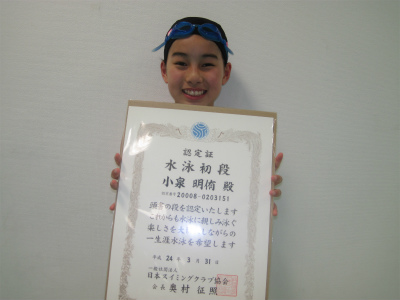 認定証
水泳初段
小泉 明侑 殿
20008-0203151
頭書の段を認定いたします
これからも水泳に親しみ泳ぐ
楽しさを大切にしながらの
一生涯水泳を希望します
平成 24 年 3 月 31 日
一般社団法人
日本スイミングクラブ協会
会長 奥村 征照